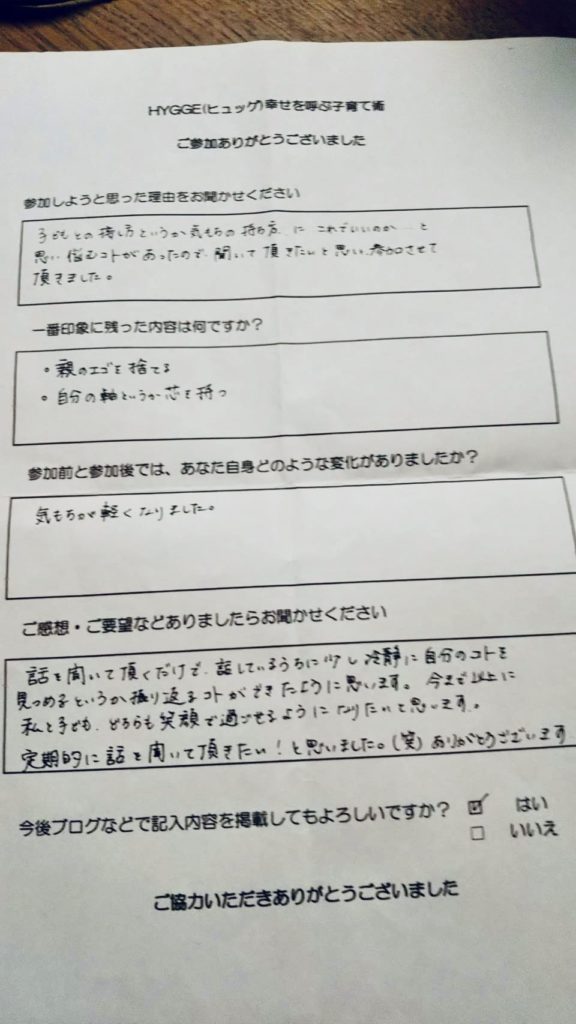 HYGGE(ヒュッゲ)幸せを呼ぶ子育て術
ご参加ありがとうございました
参加しようと思った理由をお聞かせください
子どもとの接し方というか気もちの持ち方に これでいいのか…と
思い悩むコトがあったので、聞いて頂きたいと思い、参加させて
頂きました。
一番印象に残った内容は何ですか？
・親のエゴを捨てる
・自分の軸というか芯を持つ
参加前と参加後では、あなた自身どのような変化がありましたか？
気もちが軽くなりました。
ご感想・ご要望などありましたらお聞かせください
話を聞いて頂くだけで、話しているうちに少し冷静に自分のコトを
見つめる というか振り返るコトができたように思います。今まで以上に
私と子ども、どちらも笑顔で過ごせるようになりたいと思います。
定期的に話を聞いて頂きたい！と思いました。(笑) ありがとうございます
今後ブログなどで記入内容を掲載してもよろしいですか？ ☑ はい
□ いいえ
ご協力いただきありがとうございました